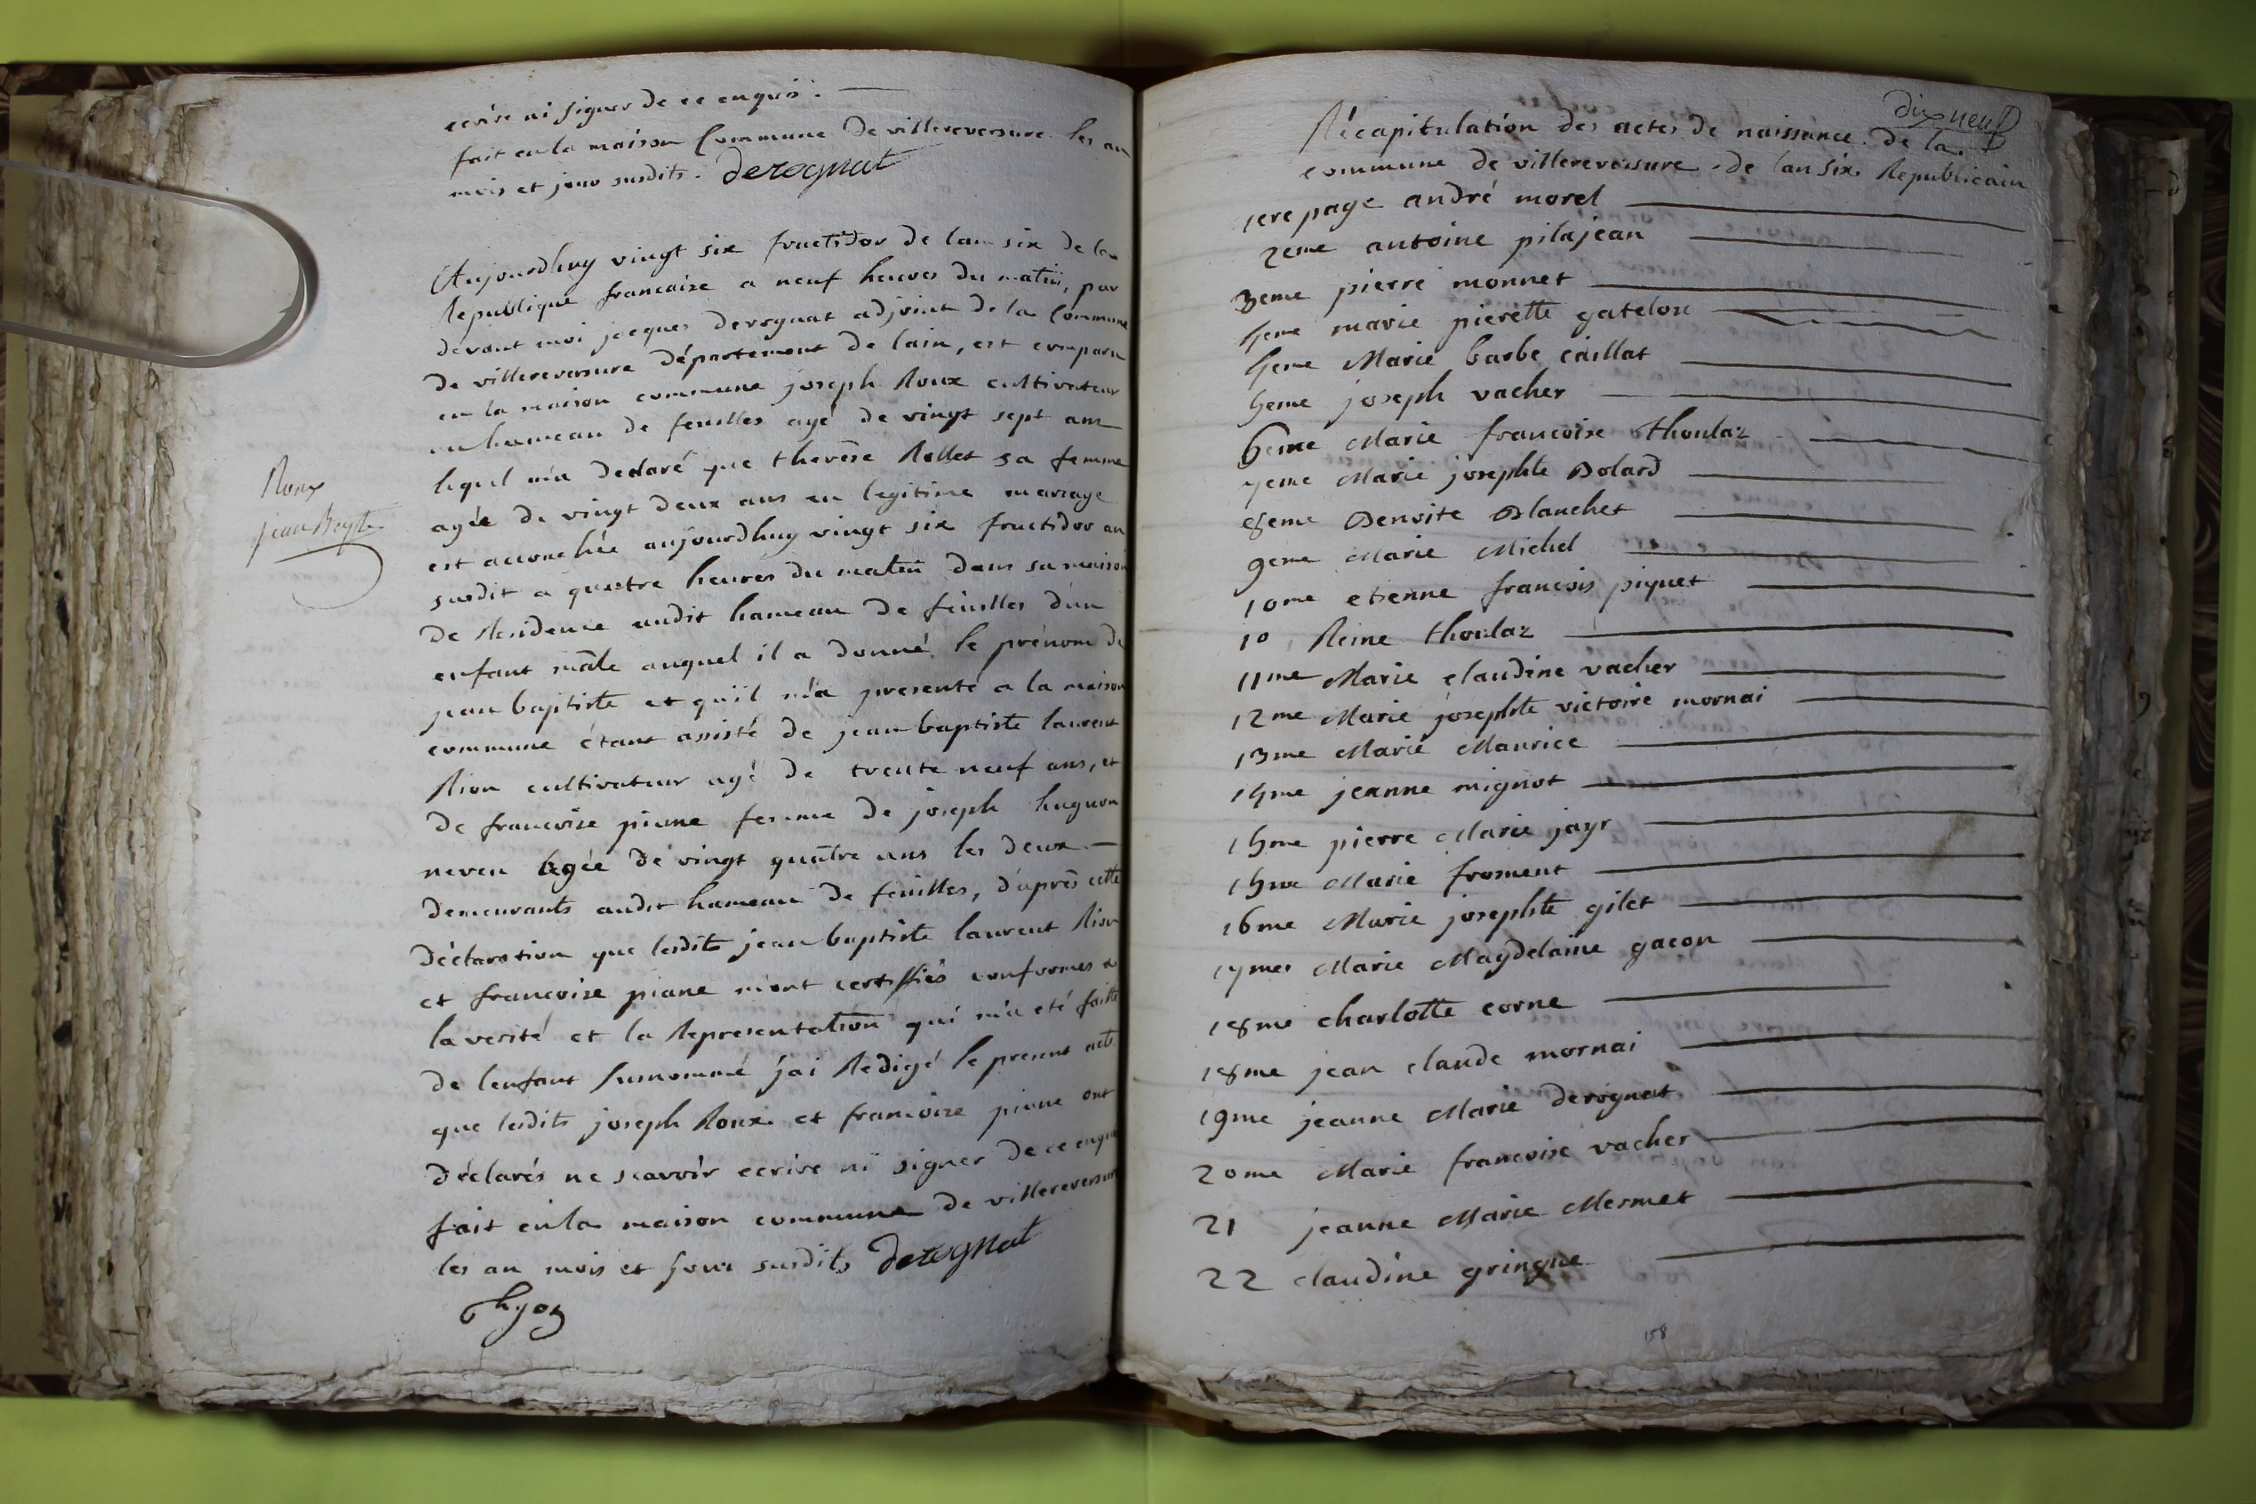 ecrire ni signer de ce enquis.
fait en la maison Commune de villereversure les an
mois et jour susdits. derognat
Aujourdhuy vingt six fructidor de lan six de la
Republique francaise a neuf heures du matin, par
devant moi jacques derognat adjoint de la Commune
de villereversure département de lain, est comparu
en la maison commune joseph Roux cultivateur
au hameau de feuilles agé de vingt sept ans
lequel m'a declaré que therèse Rollet sa femme
agée de vingt deux ans en legitime mariage
est accouchée aujourdhuy vingt six fructidor an
susdit a quatre heures du matin dans sa maison
de Residence audit hameau de feuilles d'un
enfant mâle auquel il a donné le prénom de
jean baptiste et qu'il m'a presenté a la maison
commune étant assisté de jean baptiste laurent
Rion cultivateur agé de trente neuf ans, et
de francoise piane femme de joseph hugnon
neveu agée de vingt quatre ans les deux
demeurants audit hameau de feuilles, d'après cette
déclaration que lesdits jean baptiste laurent Rion
et francoise piane m'ont certiffiés conformes a
la verité et la Representation qui m'a eté faitte
de lenfant surnommé j'ai Redigé le present acte
que lesdits joseph Roux et francoise piane ont
déclarés ne scavoir ecrire ni signer de ce enquis
fait en la maison commune de villereversure
les an mois et jour susdits derognat
Roux
jean Bapte
dix neuf
Récapitulation des actes de naissance de la
commune de villereversure de lan six Republicain
1ere page andré morel
2eme antoine pilajean
3eme pierre monnet
4eme marie pierette gatelou
4eme Marie barbe caillat
5eme joseph vacher
6eme Marie francoise thoulaz
7eme Marie josephte Bolard
8eme Benoite Blanchet
9eme Marie Michel
10me etienne francois piquet
10 Reine thoulaz
11me Marie claudine vacher
12me Marie josephte victoire mornai
13me Marie Maurice
14me jeanne mignot
15me pierre Marie jayr
15me Marie froment
16me Marie josephte gilet
17me Marie Magdelaine gacon
18me charlotte corne
18me jean claude mornai
19me jeanne Marie derognat
20me Marie francoise vacher
21 jeanne Marie Mermet
22 claudine gringue
158